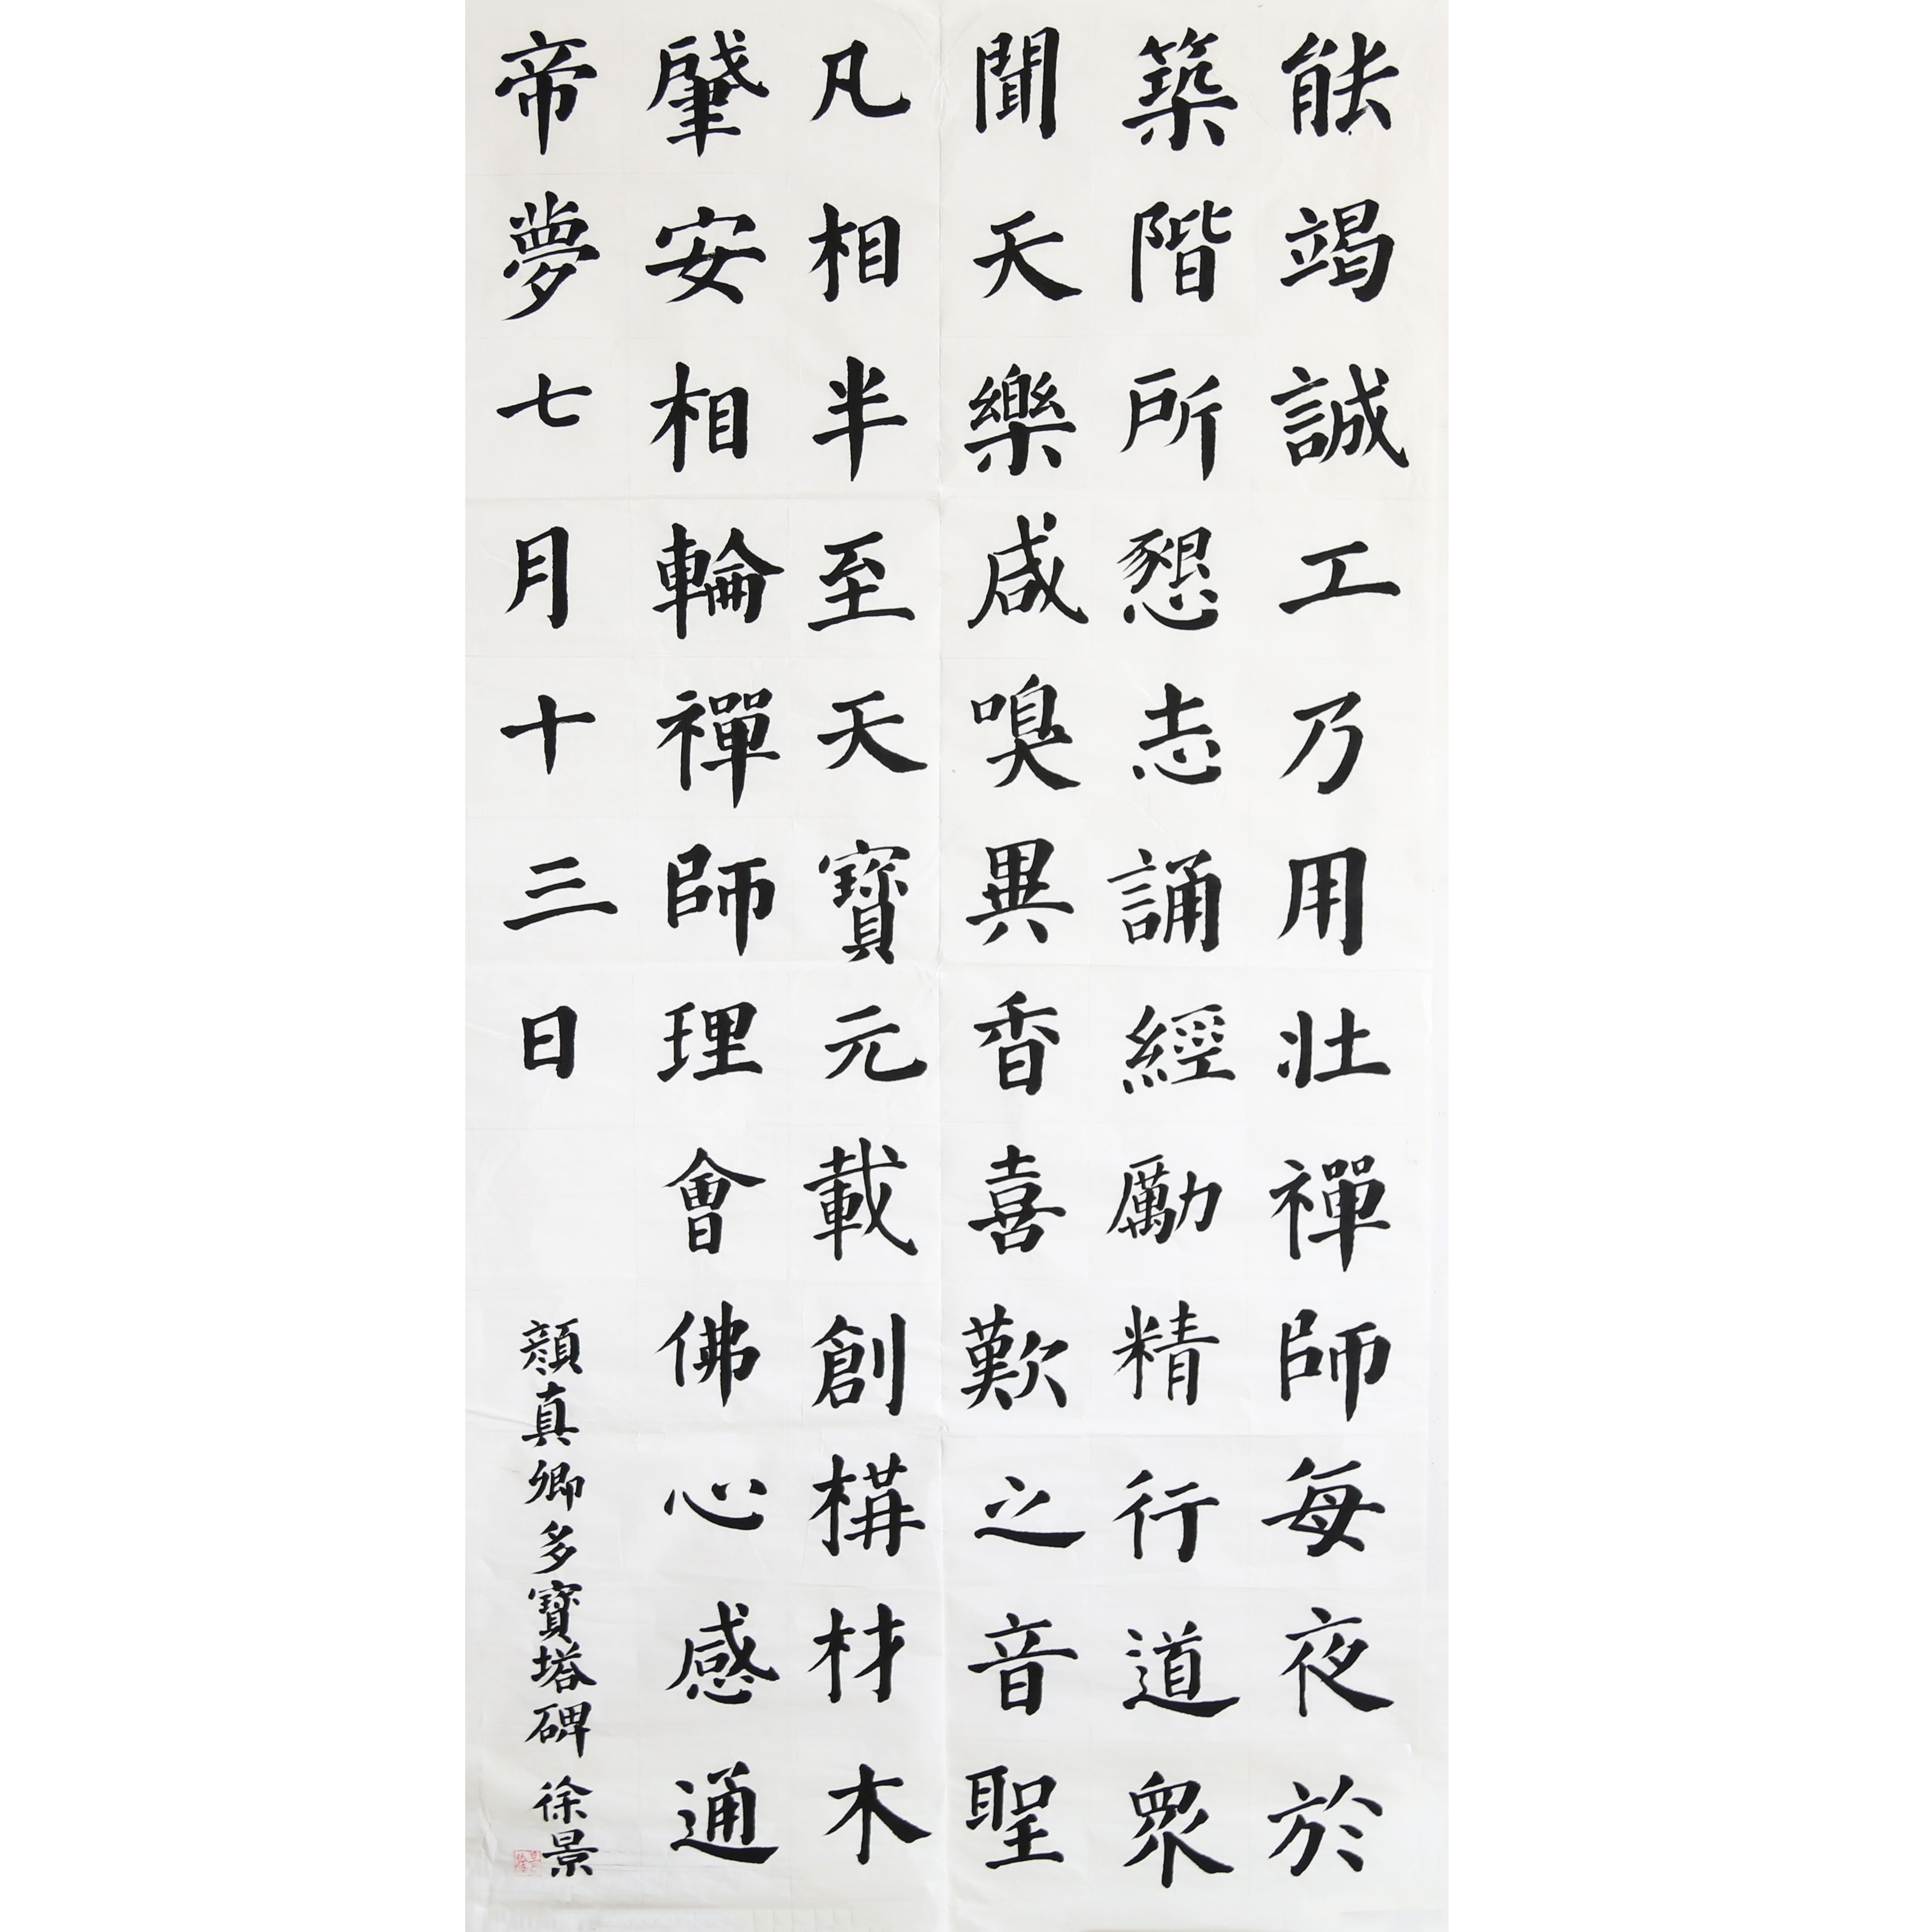 能竭誠工乃用壯禪師每夜於
築階所懇志誦經勵精行道眾
聞天樂咸嗅異香喜歎之音聖
凡相半至天寶元載創構材木
肇安相輪禪師理會佛心感通
帝夢七月十三日
顏真卿多寶塔碑 徐景